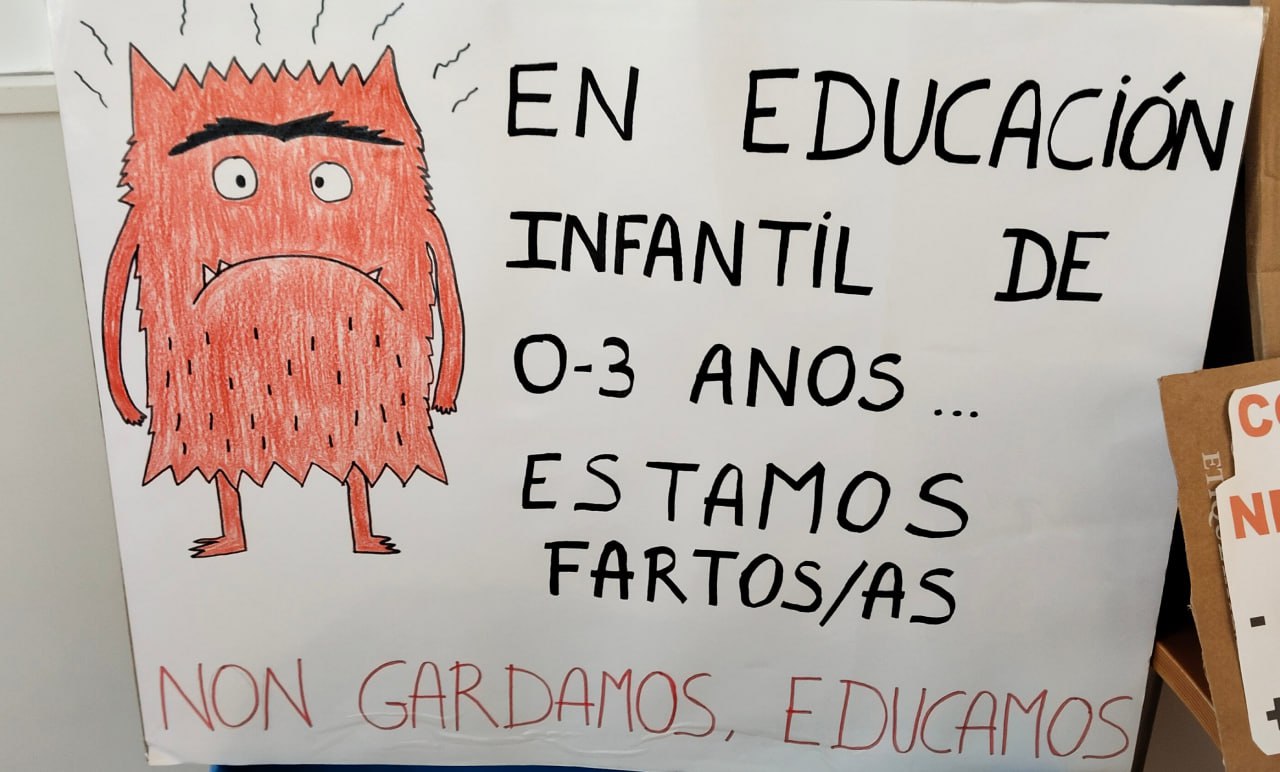 EN EDUCACIÓN
INFANTIL DE
0-3 ANOS...
ESTAMOS
FARTOS/AS
NON GARDAMOS, EDUCAMOS